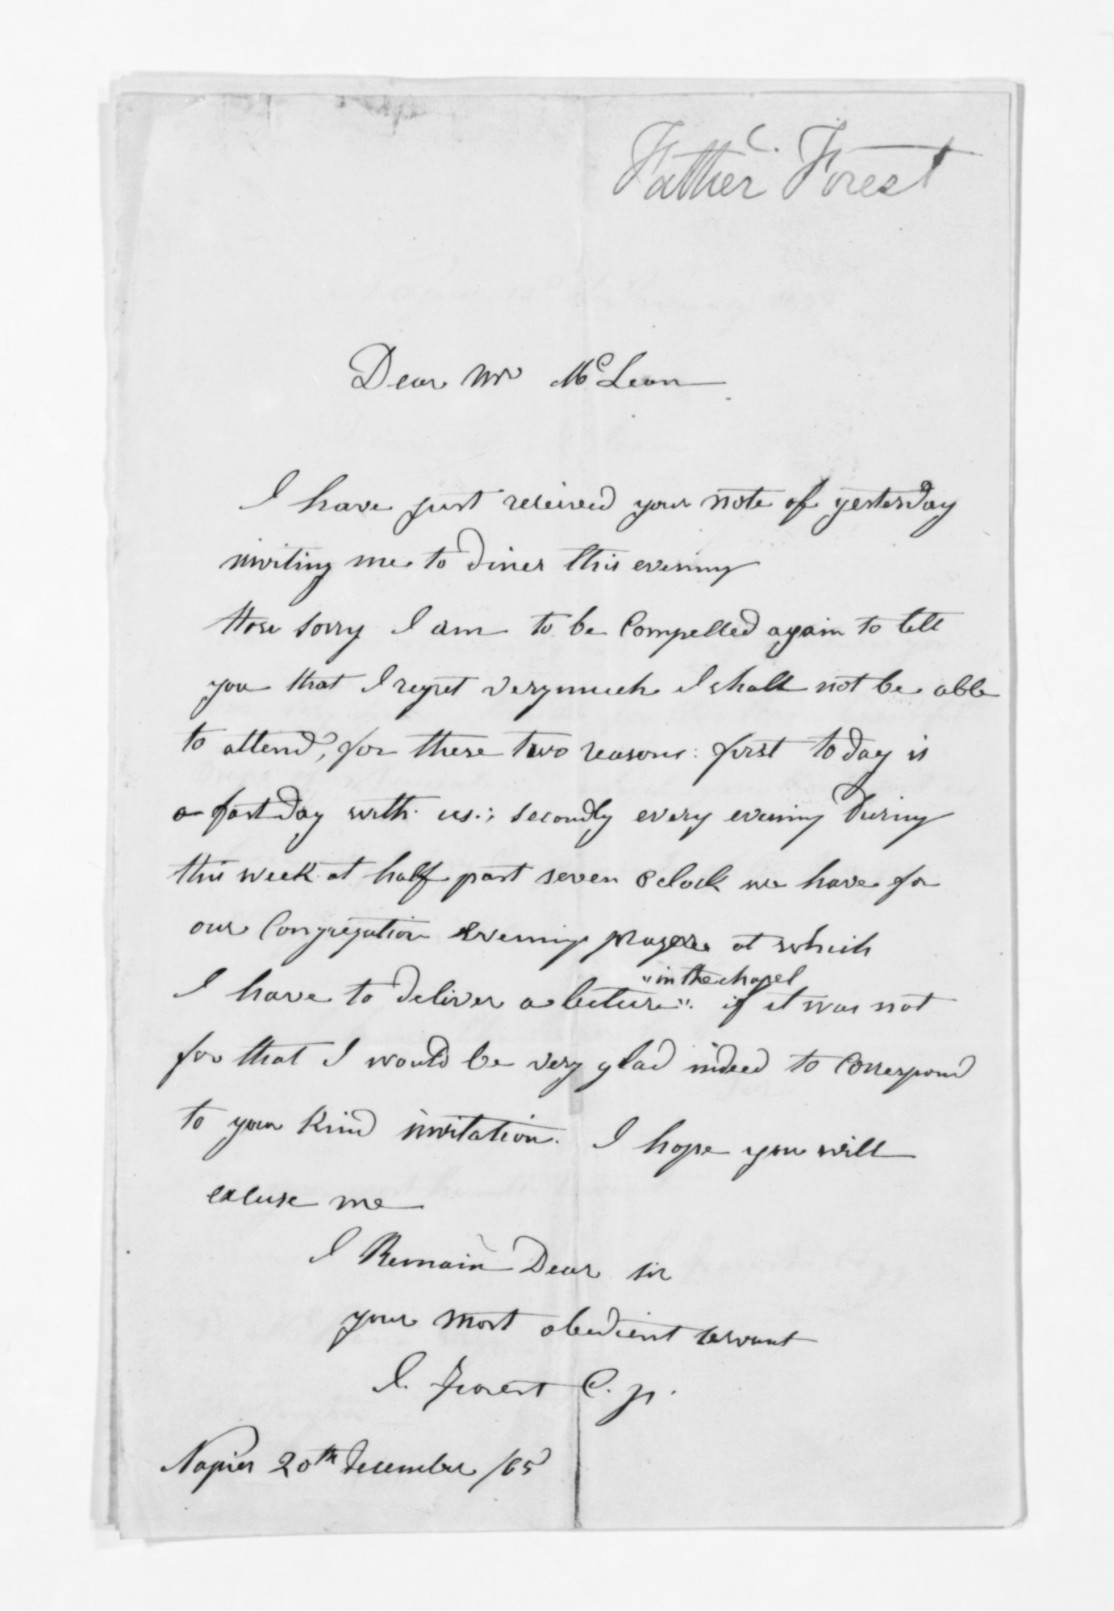 Father C. Forest
Dear Mr McLean
I have just received your note of yesterday
inviting me to diner this evening
How sorry I am to be Compelled again to tell
you that I regret very much I shall not be able
to attend, for these two reasons: first to day is
a fast day with us; secondly every evening During
this week at half past seven o clock we have for
our Congregation evening prayers at which
I have to deliver a lecture "in the chapel". if it was not
for that I would be very glad indeed to Correspond
to your Kind invitation. I hope you will
excuse me
I Remain Dear sir
your most obedient servant
J. Forest C. p.
Napier 20th December /65